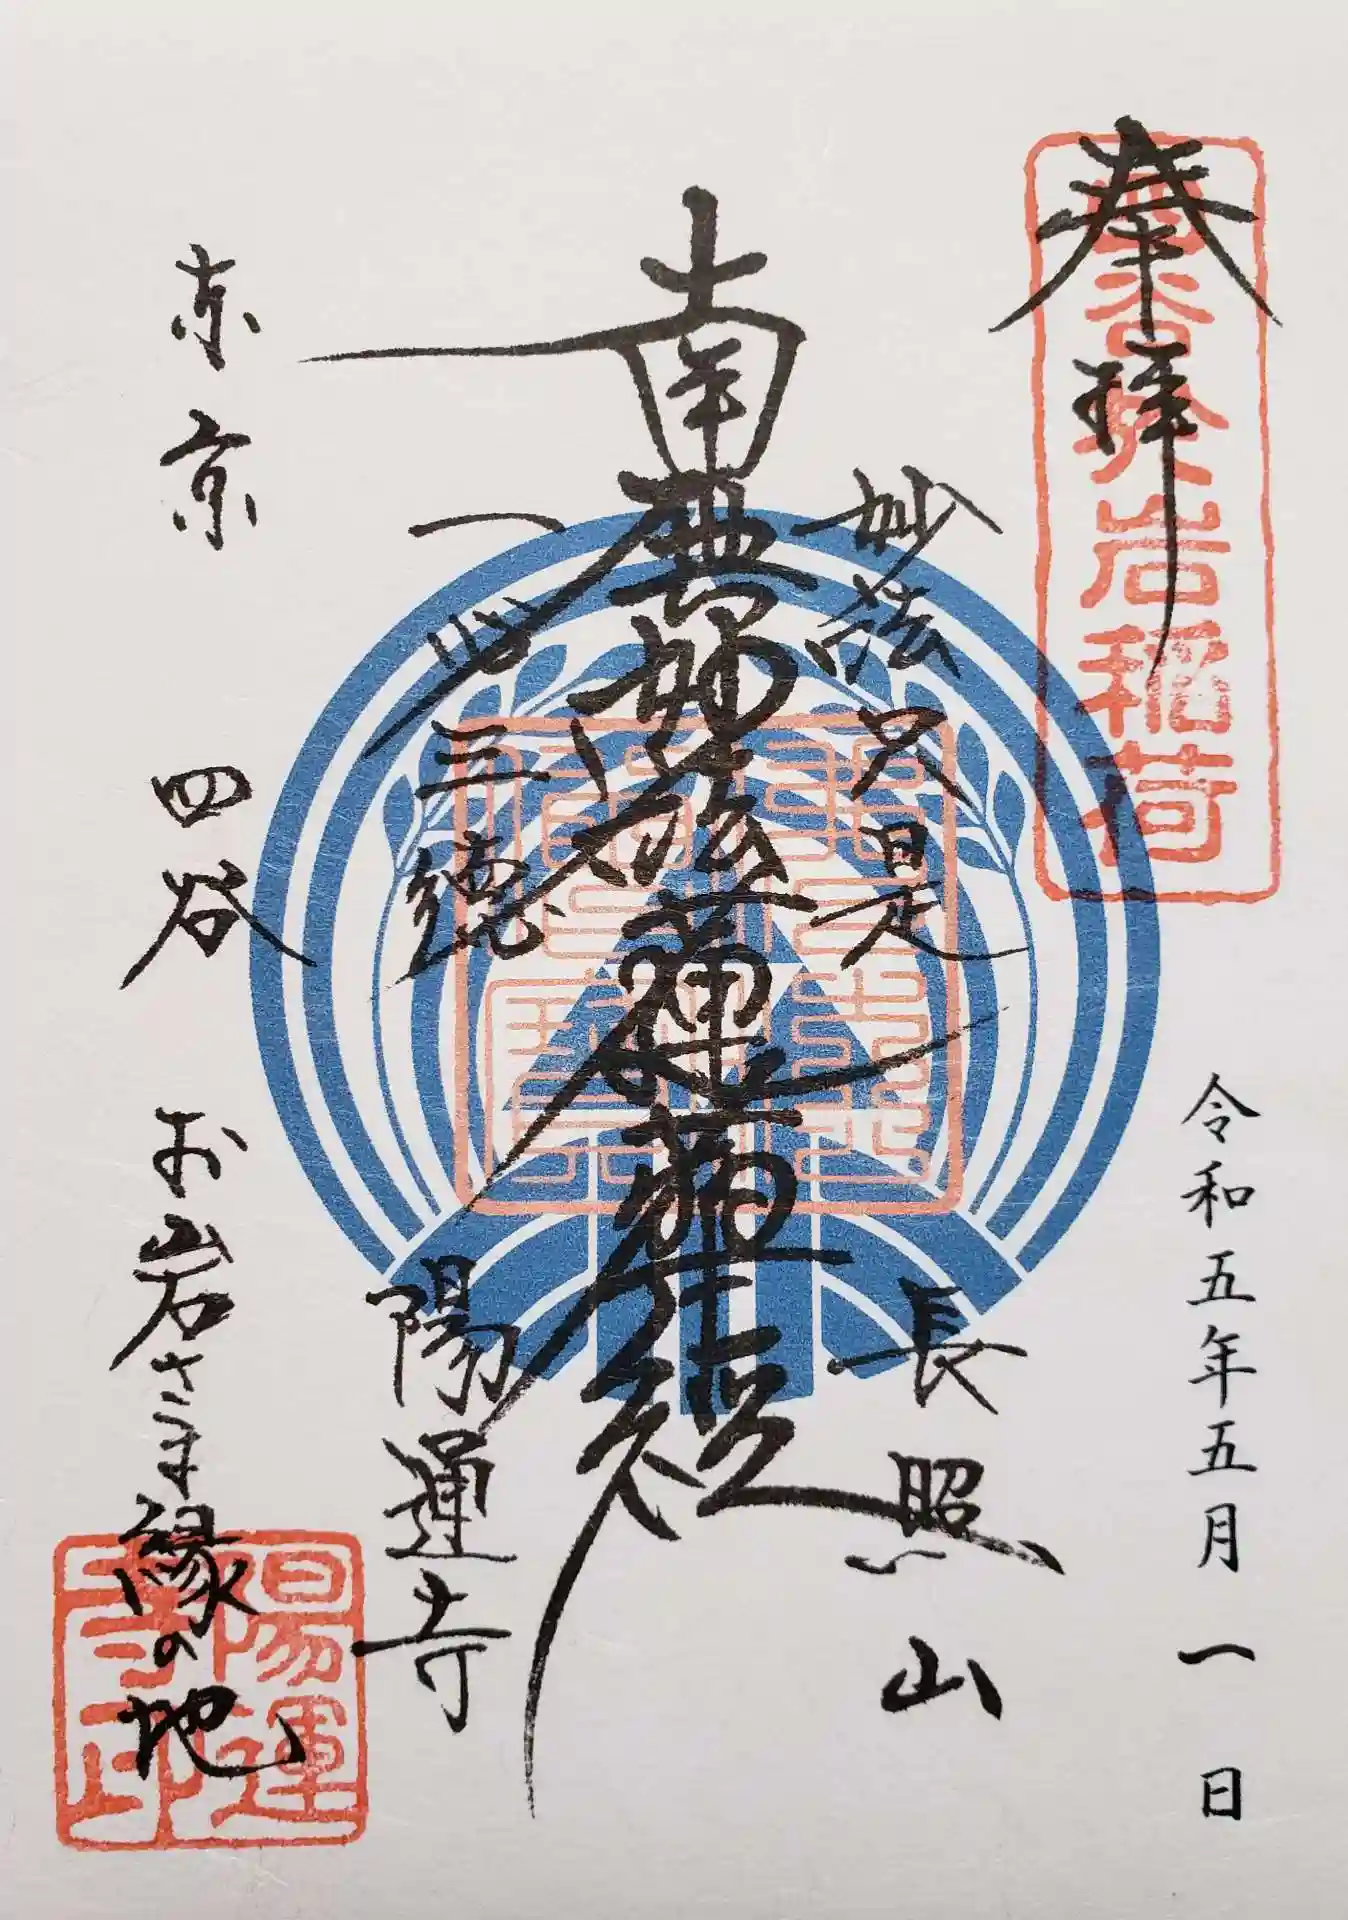 奉拝
四谷於岩稲荷
令和五年五月一日
妙法只是
長照山
南無妙法蓮華経
一心三徳
陽運寺
東京 四谷 お岩さま縁の地
陽運寺印